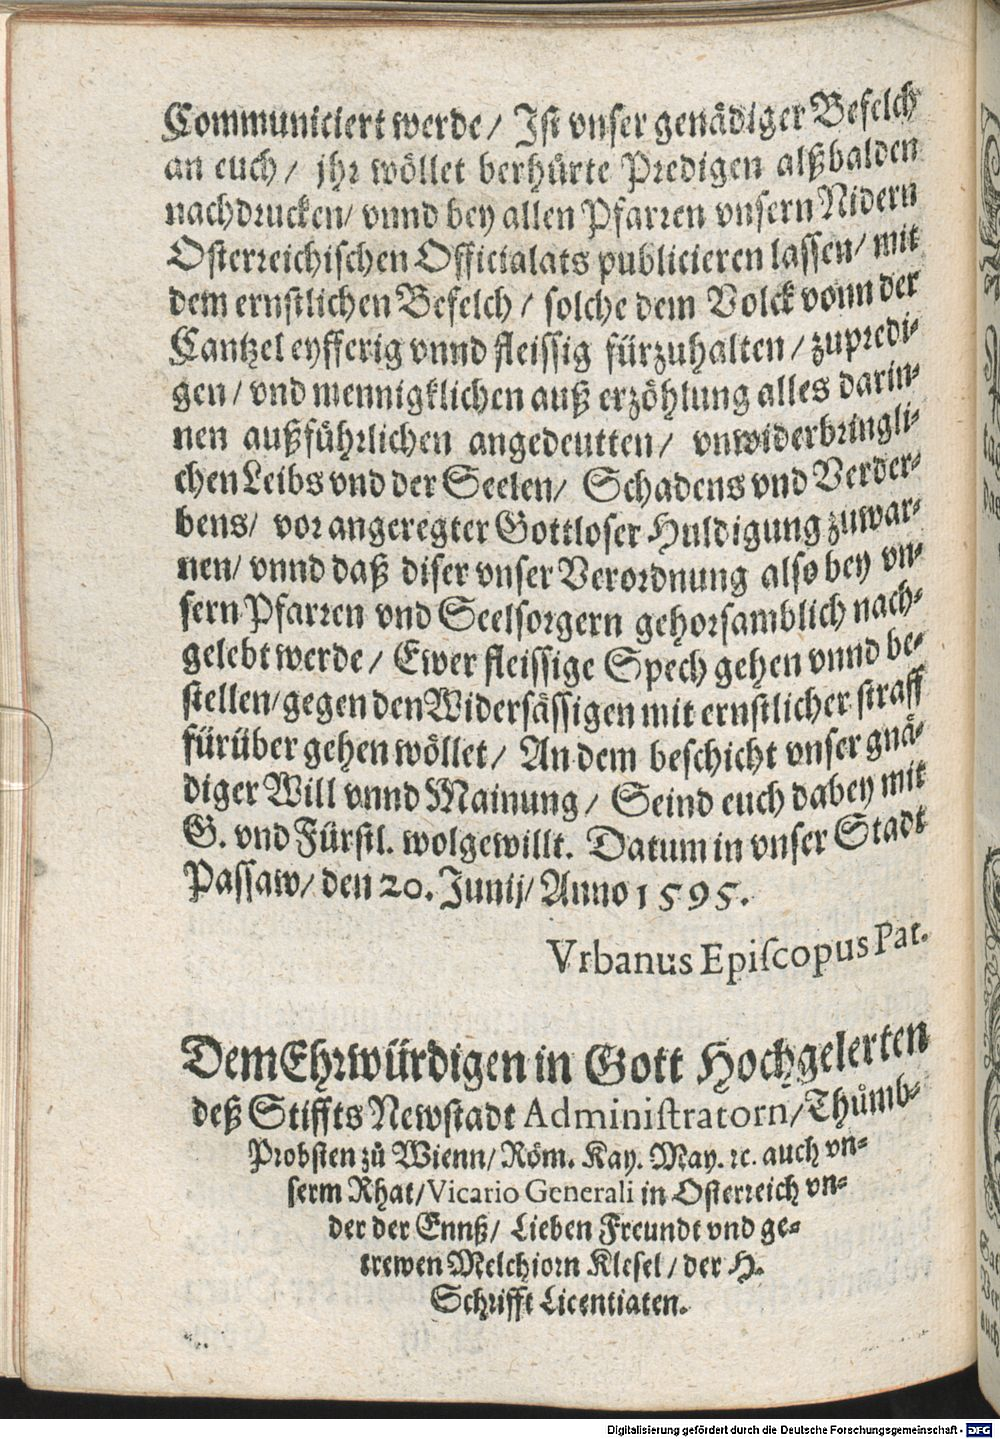 Communiciert werde/ Ist vnser genädiger Befelch
an euch/ jhr wöllet berhürte Predigen alßbalden
nachdrucken/ vnnd bey allen Pfarren vnsern Nidern
Osterreichischen Officialats publicieren lassen/ mit
dem ernstlichen Befelch/ solche dem Volck vonn der
Cantzel eyfferig vnnd fleissig fürzuhalten/ zupredi⸗
gen/ vnd mennigklichen auß erzöhlung alles darin⸗
nen außführlichen angedeutten/ vnwiderbringli⸗
chen Leibs vnd der Seelen/ Schadens vnd Verder⸗
bens/ vor angeregter Gottloser Huldigung zuwar⸗
nen/ vnnd daß diser vnser Verordnung also bey vn⸗
sern Pfarren vnd Seelsorgern gehorsamblich nach⸗
gelebt werde/ Ewer fleissige Spech gehen vnnd be⸗
stellen/ gegen den Widersässigen mit ernstlicher straff
fürüber gehen wöllet/ An dem beschicht vnser gnä⸗
diger Will vnnd Mainung/ Seind euch dabey mit
G. vnd Fürstl. wolgewillt. Datum in vnser Stadt
Passaw/ den 20. Junij/ Anno 1595.
Vrbanus Epiſcopus Pat.
Dem Ehrwürdigen in Gott Hochgelerten
deß Stiffts Newstadt Adminiſtratorn/ Thůmb⸗
Probsten zů Wienn/ Röm. Kay. May. ꝛc. auch vn⸗
serm Rhat/ Vicario Generali in Osterreich vn⸗
der der Ennß/ Lieben Freundt vnd ge⸗
trewen Melchiorn Klesel/ der H.
Schrifft Licentiaten.
Digitalisierung gefördert durch die Deutsche Forschungsgemeinschaft - DFG